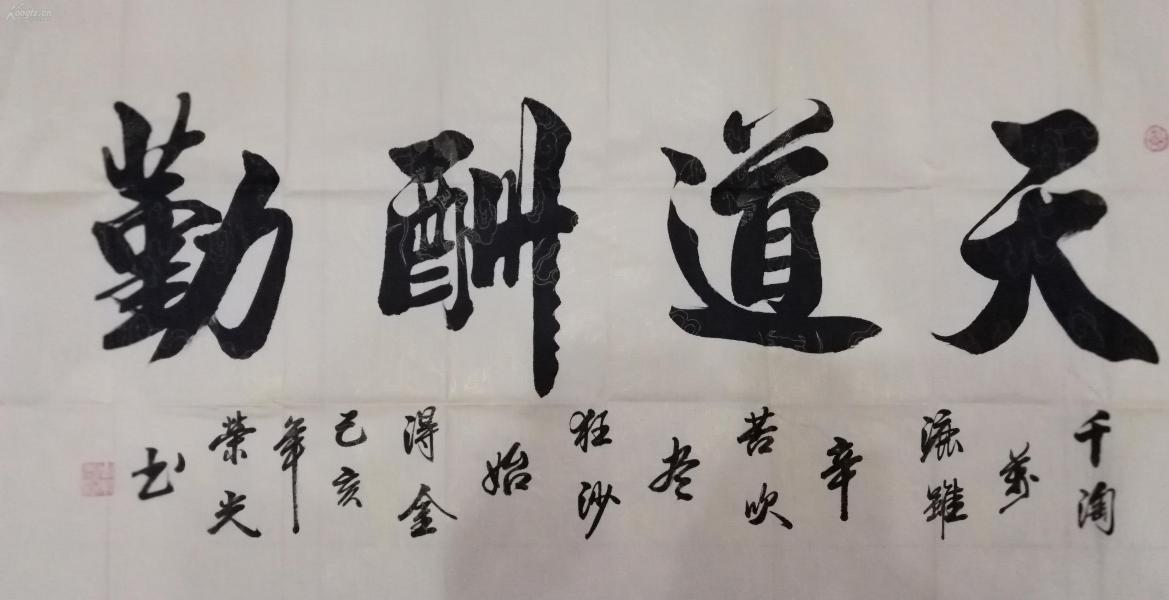 天道酬勤
千淘
万
漉雖
辛
苦吹
尽
狂沙
始
得金
己亥
年
荣光
书